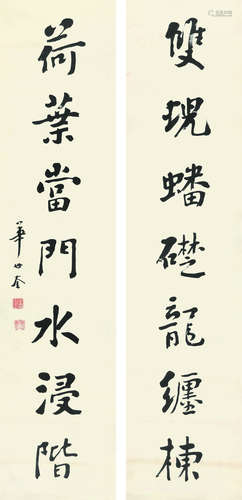 雙蟠礎龍纏棟
荷葉當門水浸階
華世奎